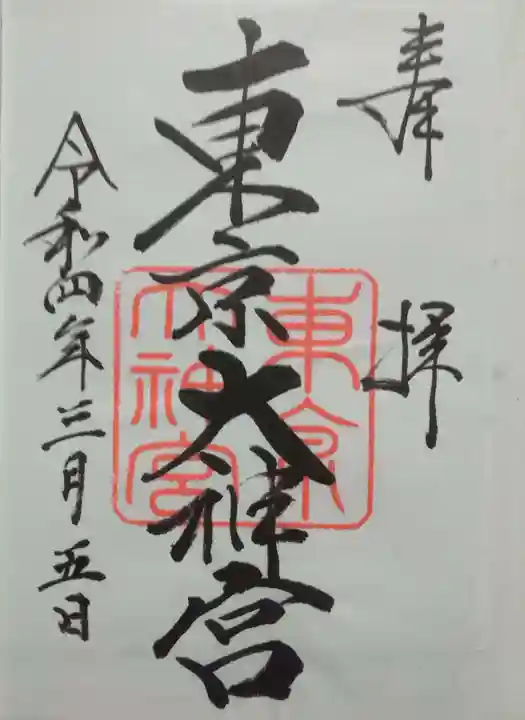 奉拝
東京大神宮
東京大神宮
令和四年三月五日